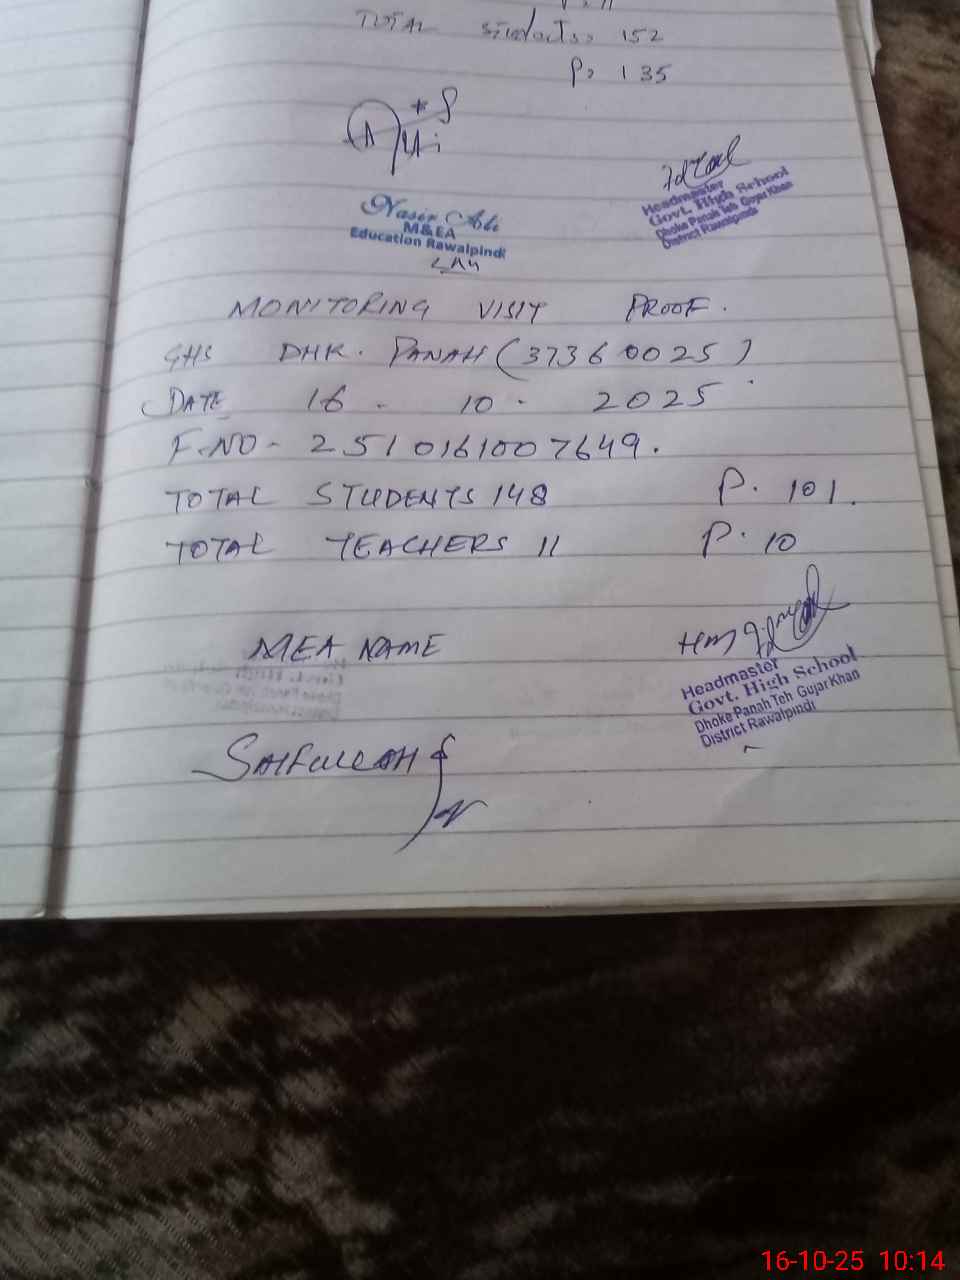 TOTAL students, 152
P, 135
Nasir Ali
M&EA
Education Rawalpindi
Headmaster
Govt. High School
Dhoke Panah Teh Gujar Khan
District Rawalpindi
MONITORING VISIT PROOF.
GHS DHK. PANAH (37360025)
DATE 16 - 10 - 2025
F.NO - 2510161007649.
TOTAL STUDENTS 148 P. 101.
TOTAL TEACHERS 11 P. 10
MEA NAME
HM
Headmaster
Govt. High School
Dhoke Panah Teh Gujar Khan
District Rawalpindi
SAIFULLAH
16-10-25 10:14